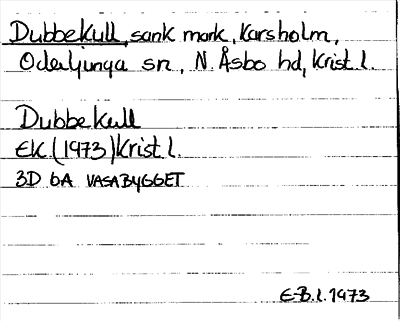 Dubbekull, sank mark, Karsholm,
Oderljunga sn, N. Åsbo hd, Krist. l.
Dubbekull
EK. (1973) Krist. l.
3D 6A VASABYGGET
E-B. l. 1973